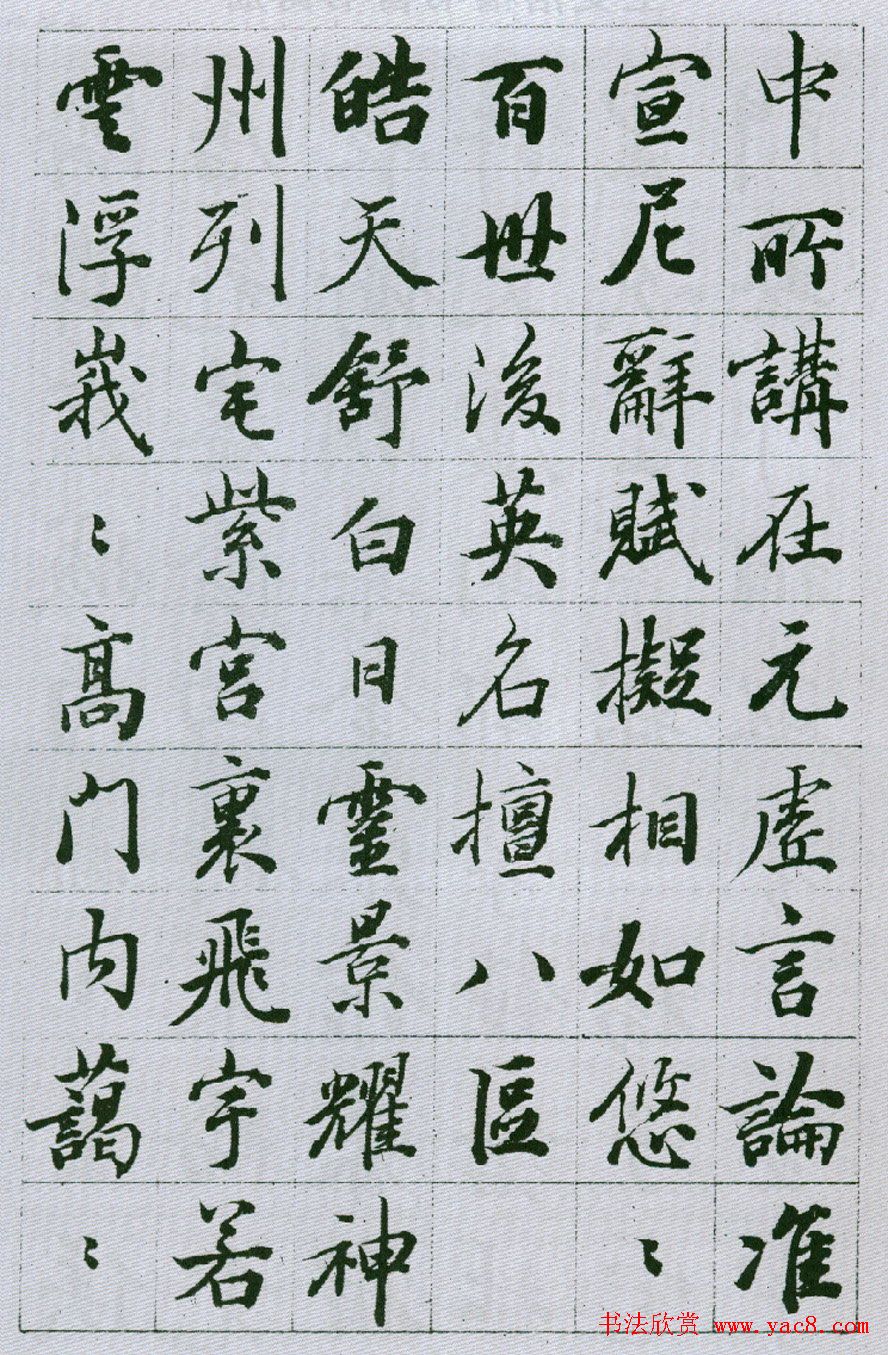 中所講在元虛言論准
宣尼辭賦擬相如悠〻
百世後英名擅八區
皓天舒白日靈景耀神
州列宅紫宮裏飛宇若
雲浮峩〻高門内藹〻
书法欣赏 www.yac8.com